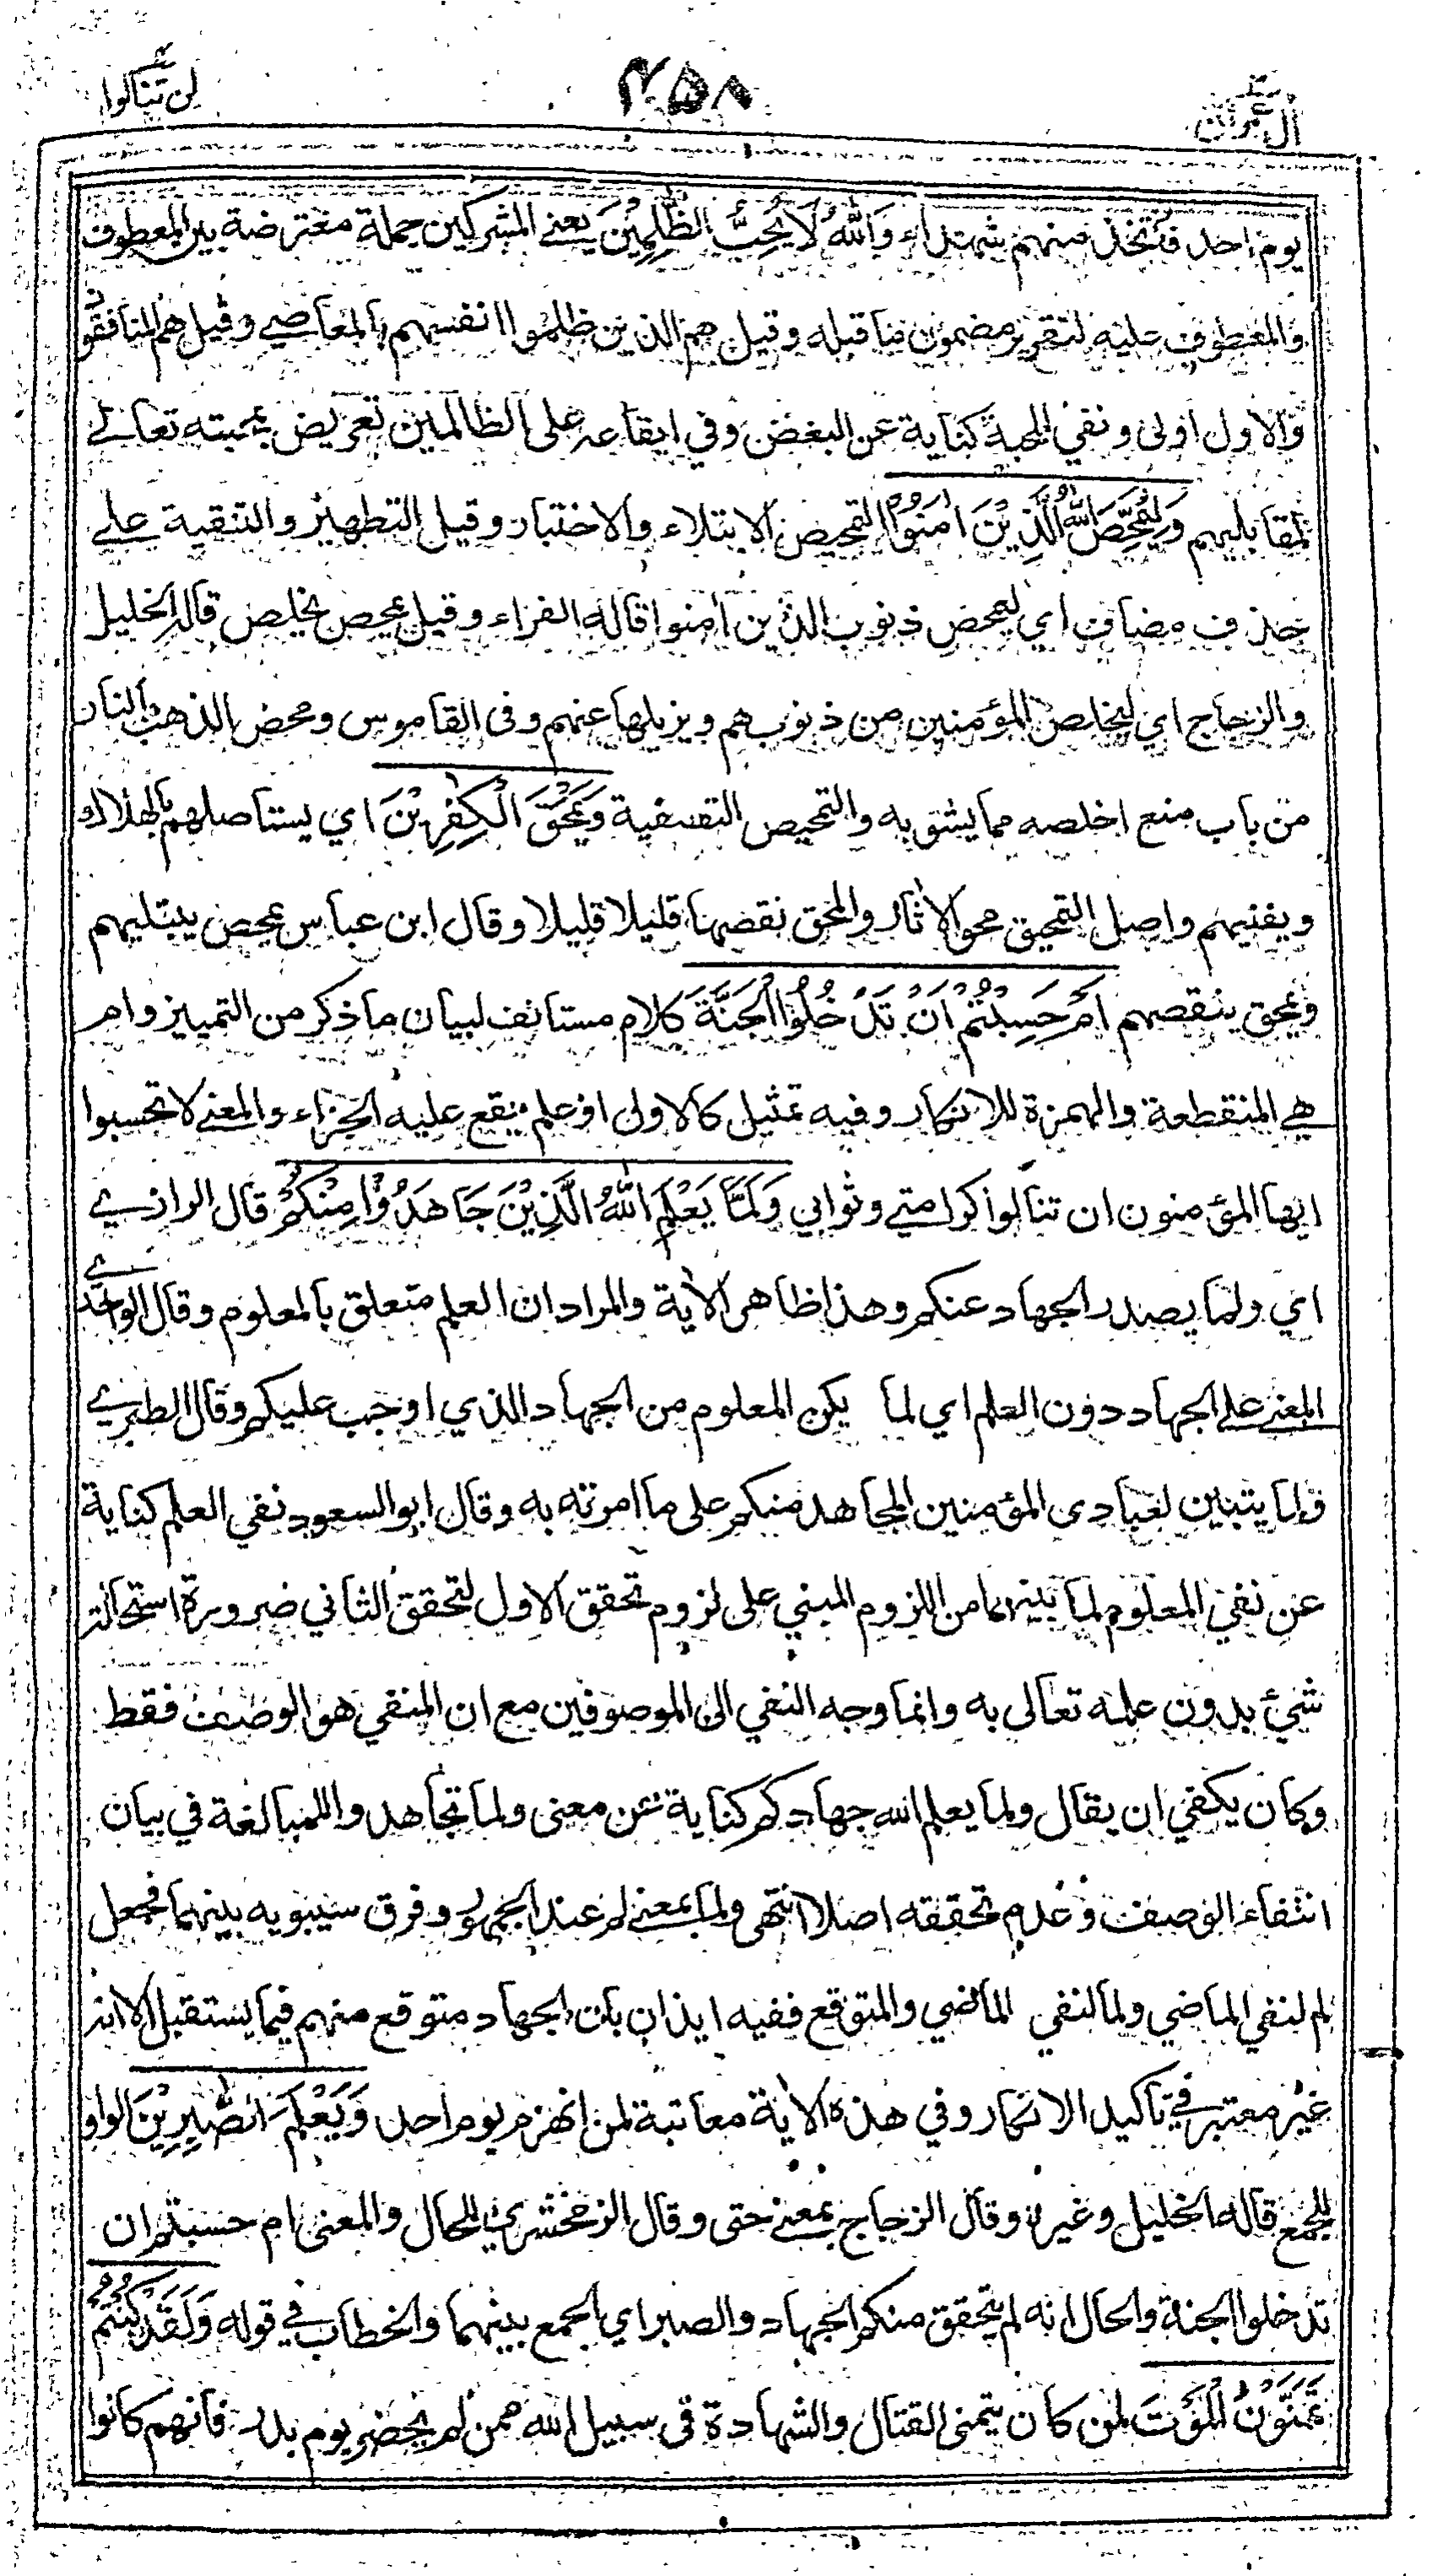 لن تنالوا
٢٥٨
ال عمران
يوم احد فاتخذ منهم شهداء وَاللّٰهُ لَا يُحِبُّ الظّٰلِمِيْنَ يعني المشركين جملة معترضة بين المعطوف
والمعطوف عليه لتقرير مضمون ما قبله وقيل هم الذين ظلموا انفسهم بالمعاصي وقيل هم المنافقون
والاول اولى ونفي المحبة كناية عن البغض وفي ايقاعه على الظالمين تعريض بمحبته تعالى
لمقابليهم وَلِيُمَحِّصَ اللّٰهُ الَّذِيْنَ اٰمَنُوْا التمحيص الابتلاء والاختبار وقيل التطهير والتنقية على
حذف مضاف اي ليمحص ذنوب الذين امنوا قاله الفراء وقيل يمحص يخلص قاله الخليل
والزجاج اي ليخلص المؤمنين من ذنوبهم ويزيلها عنهم وفى القاموس ومحص الذهب بالنار
من باب منع اخلصه مما يشوبه والتمحيص التصفية وَيَمْحَقَ الْكٰفِرِيْنَ اي يستاصلهم بالهلاك
ويفنيهم واصل التمحيق محو الاثار والمحق نقصها قليلا قليلا وقال ابن عباس يمحص يبتليهم
ويمحق ينقصهم اَمْ حَسِبْتُمْ اَنْ تَدْخُلُوا الْجَنَّةَ كلام مستانف لبيان ما ذكر من التمييز وام
هي المنقطعة والهمزة للانكار وفيه تمثيل كالاولى او علم يقع عليه الجزاء والمعنى لا تحسبوا
ايها المؤمنون ان تنالوا كرامتي وثوابي وَلَمَّا يَعْلَمِ اللّٰهُ الَّذِيْنَ جَاهَدُوْا مِنْكُمْ قال الرازي
اي ولما يصدر الجهاد عنكم وهذا ظاهر الاية والمراد ان العلم متعلق بالمعلوم وقال الواحدي
المعنى على الجهاد دون العلم اي لما يكن المعلوم من الجهاد الذي اوجب عليكم وقال الطبري
ولما يتبين لعبادى المؤمنين المجاهد منكم على ما امرته به وقال ابو السعود نفي العلم كناية
عن نفي المعلوم لما بينهما من اللزوم المبني على لزوم تحقق الاول لتحقق الثاني ضرورة استحالة
شيء بدون علمه تعالى به وانما وجه النفي الى الموصوفين مع ان المنفي هو الوصف فقط
وكان يكفي ان يقال ولما يعلم الله جهادكم كناية عن معنى ولما تجاهدوا للمبالغة في بيان
انتفاء الوصف وعدم تحققه اصلا انتهى ولما بمعنى لم عند الجمهور وفرق سيبويه بينهما فجعل
لم لنفي الماضي ولما لنفي الماضي والمتوقع ففيه ايذان بان الجهاد متوقع منهم فيما يستقبل الا انه
غير معتبر في تاكيد الانكار وفي هذه الاية معاتبة لمن انهزم يوم احد وَيَعْلَمَ الصّٰبِرِيْنَ الواو
للجمع قاله الخليل وغيره وقال الزجاج بمعنى حتى وقال الزمخشري للحال والمعنى ام حسبتم ان
تدخلوا الجنة والحال انه لم يتحقق منكم الجهاد والصبر اي الجمع بينهما والخطاب في قوله وَلَقَدْ كُنْتُمْ
تَمَنَّوْنَ الْمَوْتَ لمن كان يتمنى القتال والشهادة فى سبيل الله ممن لم يحضر يوم بدر فانهم كانوا